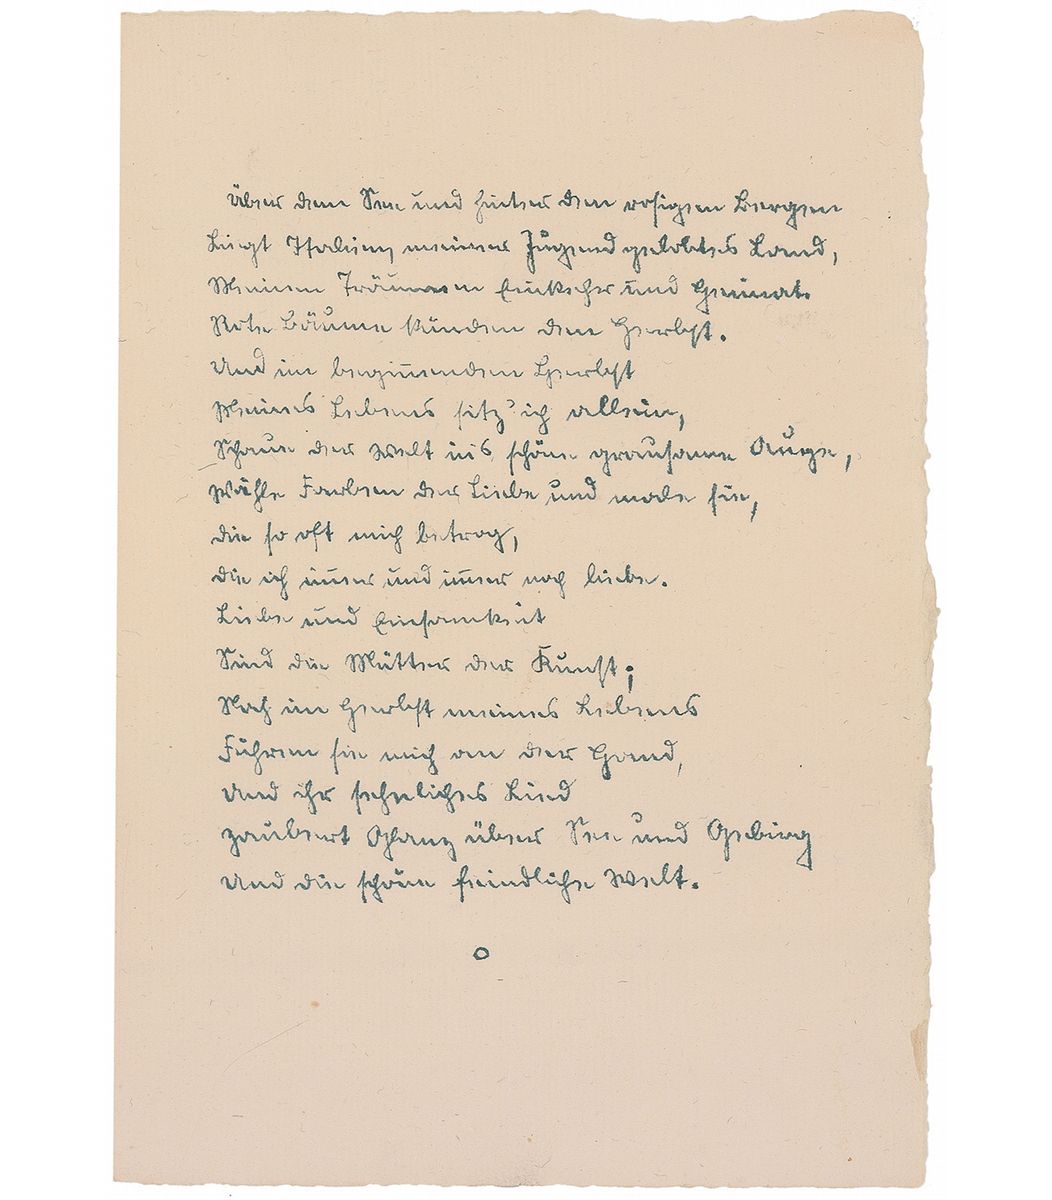 Über dem See und hinter den rosigen Bergen
Liegt Italien, meiner Jugend gelobtes Land,
Meinen Träumen Einkehr und Heimat.
Rote Bäume künden den Herbst.
Und im beginnenden Herbst
Meines Lebens sitz' ich allein,
Schaue der Welt ins schöne grausame Auge,
Wähle Farben der Liebe und male sie,
die so oft mich betrog,
die ich immer und immer noch liebe.
Liebe und Einsamkeit
Sind die Mütter der Kunst;
Noch im Herbst meines Lebens
Führen sie mich an der Hand,
Und ihr sehnliches Lied
zaubert Glanz über See und Gebirg
Und die schöne feindliche Welt.